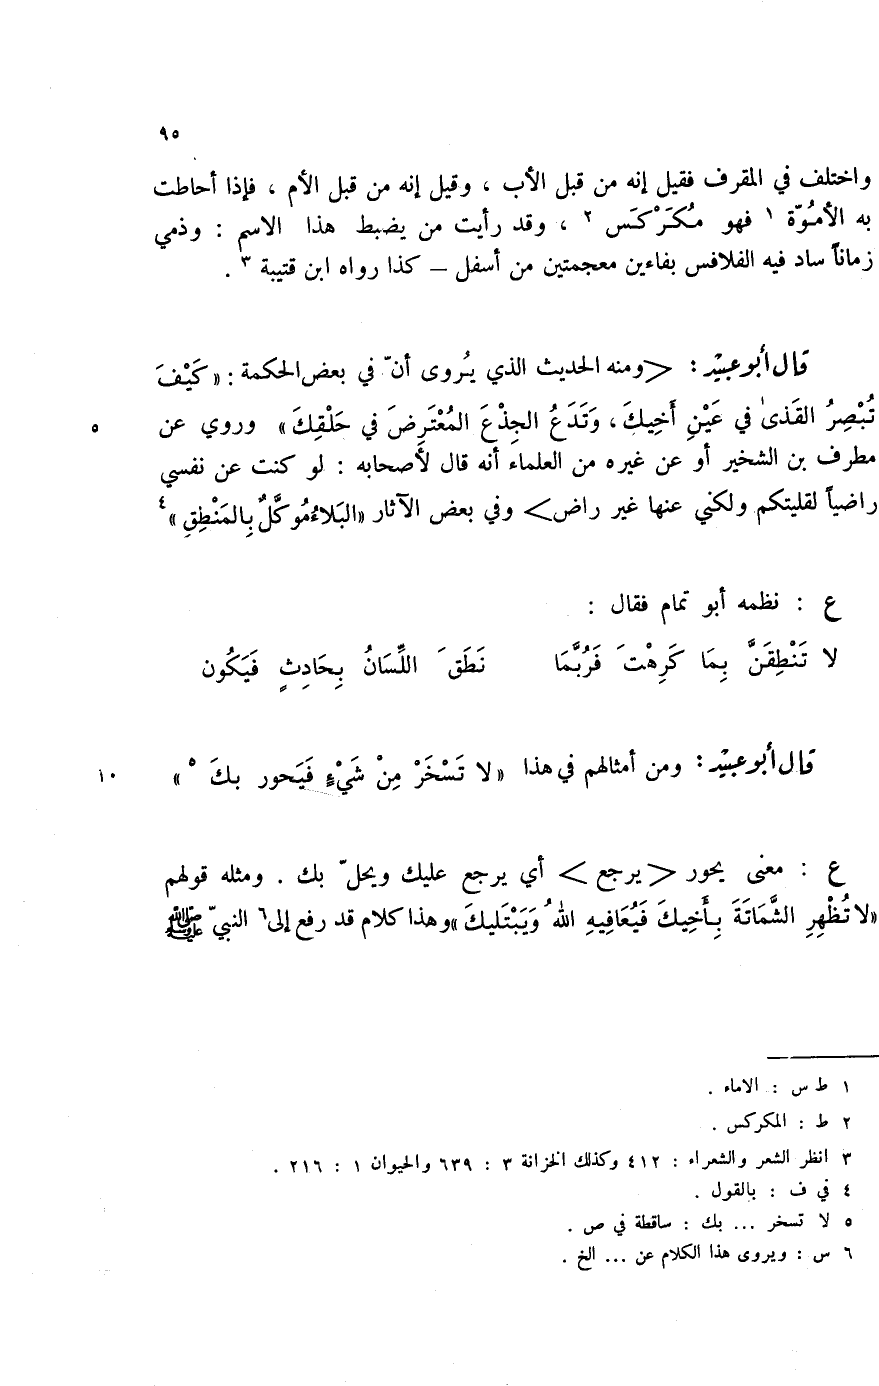 ٩٥
واختلف في المقرف فقيل إنه من قبل الأب ، وقيل إنه من قبل الأم ، فإذا أحاطت
به الأمُوّة ١ فهو مُكَرْكَس ٢ ، وقد رأيت من يضبط هذا الاسم : وذمي
زماناً ساد فيه الفلافس بفاءين معجمتين من أسفل – كذا رواه ابن قتيبة ٣ .
قال أبو عبيد : <ومنه الحديث الذي يُروى أنّ في بعض الحكمة : « كَيْفَ
تُبْصِرُ القَذىٰ في عَيْنِ أَخِيكَ ، وَتَدَعُ الجِذْعَ المُعْتَرِضَ في حَلْقِكَ » وروي عن ٥
مطرف بن الشخير أو عن غيره من العلماء أنه قال لأصحابه : لو كنت عن نفسي
راضياً لقليتكم ولكني عنها غير راض> وفي بعض الآثار « البَلاءُ مُوكَّلٌ بِالمَنْطِقِ » ٤
ع : نظمه أبو تمام فقال :
لا تَنْطِقَنَّ بِمَا كَرِهْتَ فَرُبَّمَا نَطَقَ اللِّسَانُ بِحَادِثٍ فَيَكُون
قال أبو عبيد : ومن أمثالهم في هذا « لا تَسْخَرْ مِنْ شَيْءٍ فَيَحور بكَ ٥ » ١٠
ع : معنى يحور <يرجع> أي يرجع عليك ويحلّ بك . ومثله قولهم
« لا تُظْهِرِ الشَّمَاتَةَ بِأَخِيكَ فَيُعَافِيهِ اللهُ وَيَبْتَليكَ » وهذا كلام قد رفع إلى ٦ النبيّ ﷺ
١ ط س : الاماء .
٢ ط : المكركس .
٣ انظر الشعر والشعراء : ٤١٢ وكذلك الخزانة ٣ : ٦٣٩ والحيوان ١ : ٢١٦ .
٤ في ف : بالقول .
٥ لا تسخر ... بك : ساقطة في ص .
٦ س : ويروى هذا الكلام عن ... الخ .